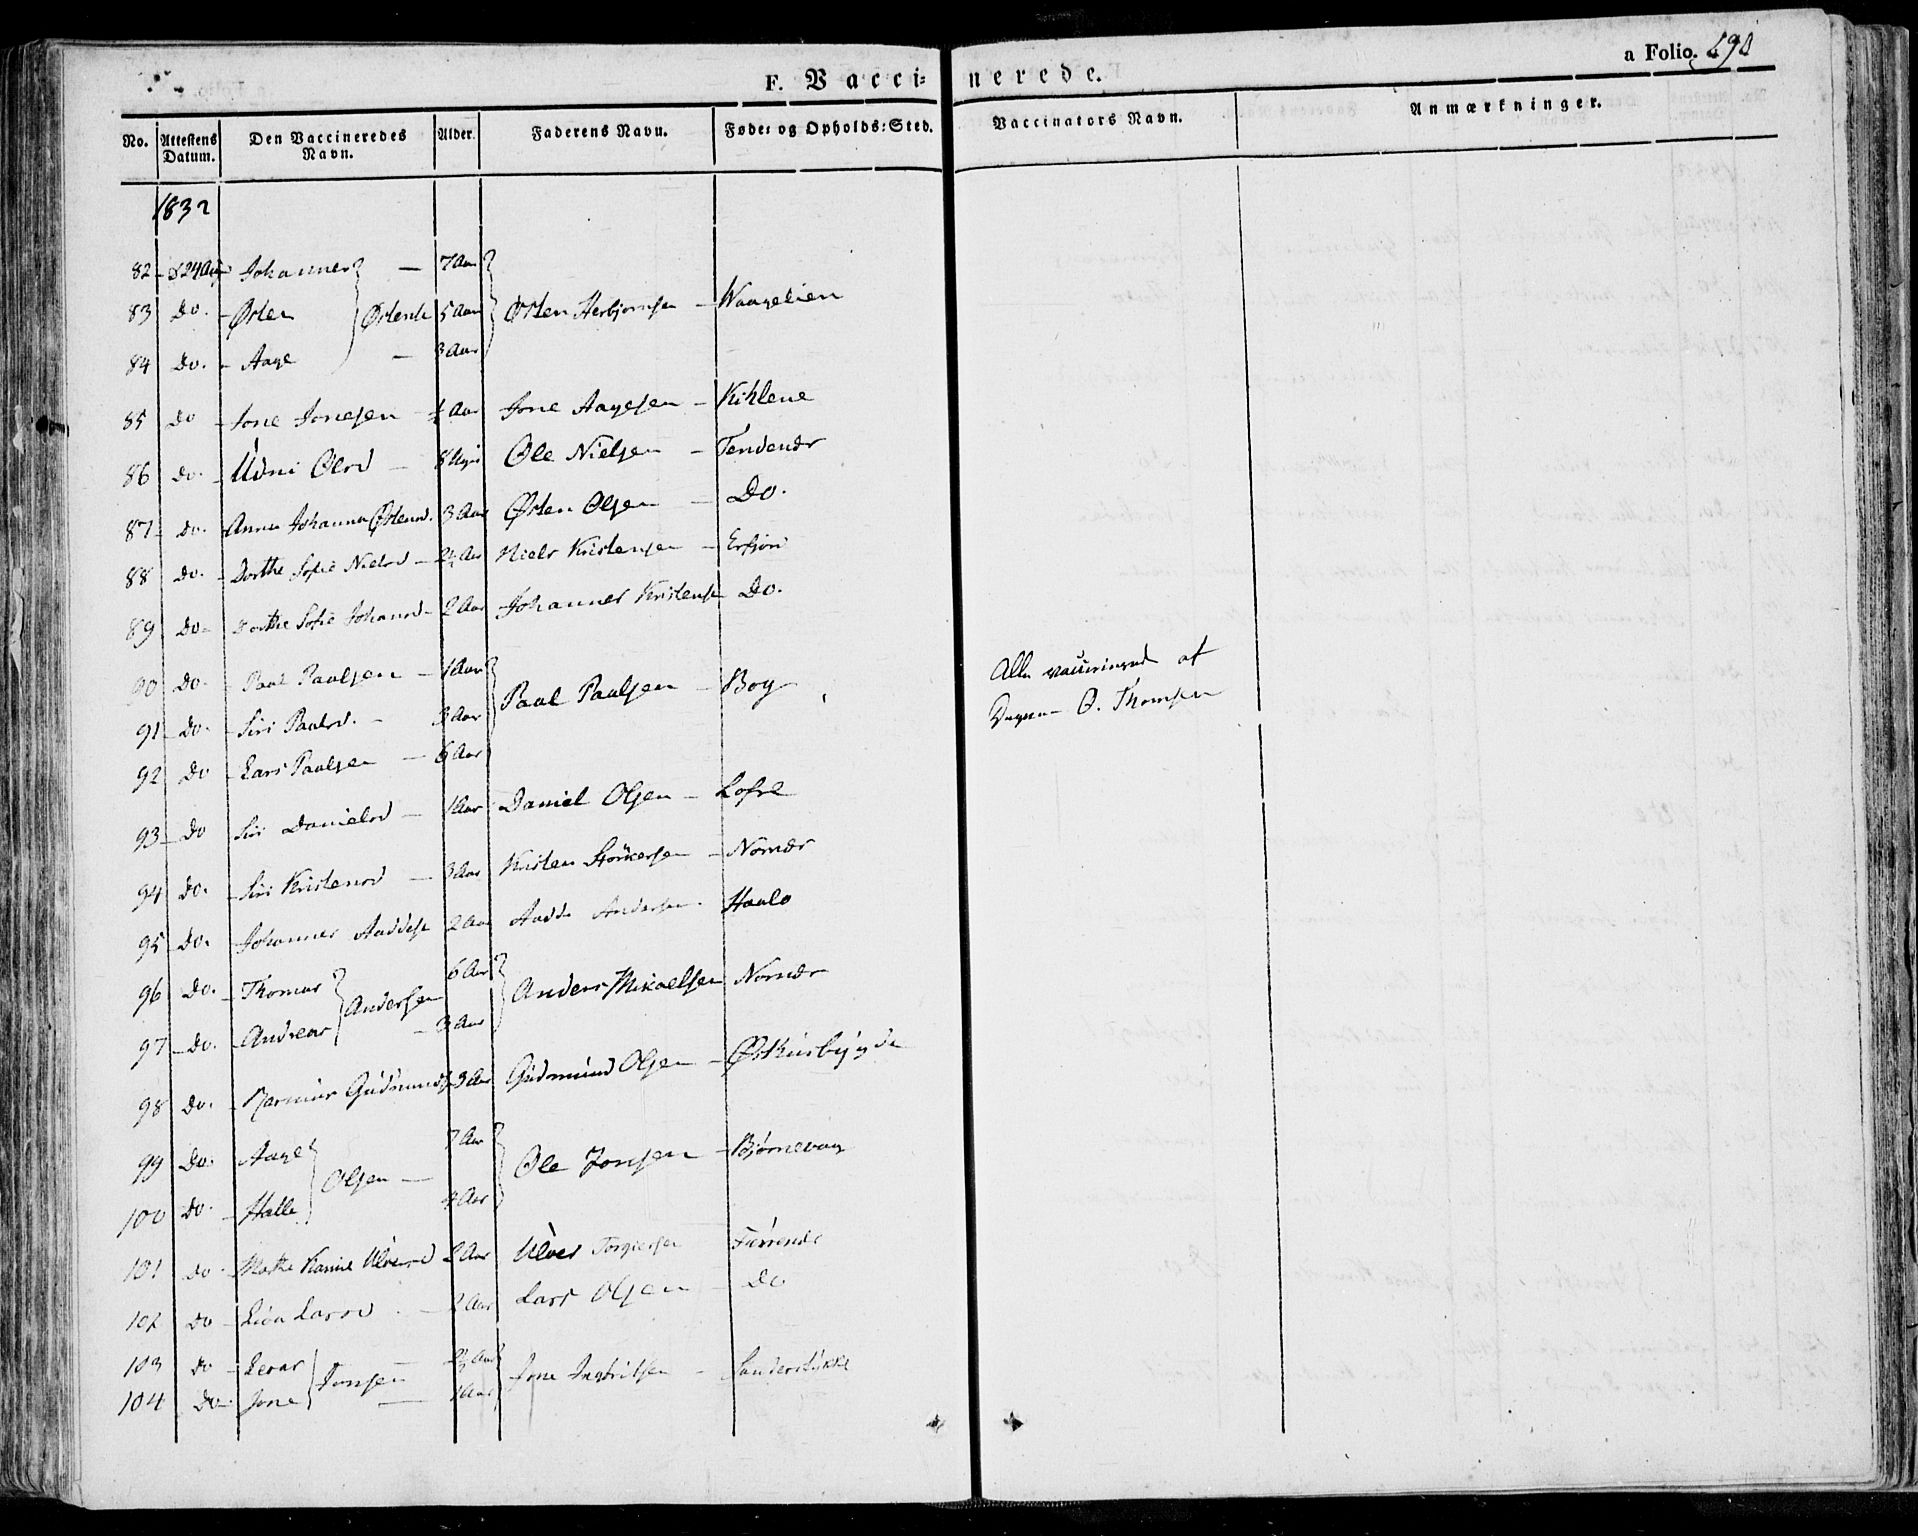 F. Vaccinerede.
a Folio. 290
No. Attestens Datum. Den Vaccineredes Navn. Alder. Faderens Navn. Føde- og Opholds-Sted. Vaccinators Navn. Anmærkninger.
1832
82 24 Aug Johannes } Østensen 7 Aar } Østen Herbjørnsen Waagelien
83 Do. Østen 5 Aar
84 Do. Aage 3 Aar
85 Do Jone Jonesen Aar Jone Aagesen Kihlene
86 Do. Udni Olsd 8 Ole Nielsen Tendenær
87 Do. Anna Johanna Østensd. 3 Aar Østen Olsen Do.
88 Do. Dorthe Sofie Nielsd 2½ Aar Niels Kristensen Erfjon
89 Do Dorthe Sofie Johansd 2 Aar Johannes Kristensen Do.
90 Do. Paul Paulsen 1 Aar } Paul Paulsen Bog
91 Do. Siri Paulsd. 3 Aar
92 Do Lars Paulsen 6 Aar
Alle vaccinered af
O. Thomsen
93 Do Siri Danielsd 1 Aar Daniel Olsen Lofre
94 Do. Siri Kristensd 3 Aar Kristen Størkersen Nømær
95 Do. Johannes Aaddese 2 Aar Aadde Andersen Haalo
96 Do. Thomas } Andersen 6 Aar } Anders Mikaelsen Nomær
97 Do. Andreas 3 Aar
98 Do. Rasmus Gudmunds 3 Aar Gudmund Olsen Østhusbygde
99 Do. Aage } Olsen 7 Aar } Ole Jonsen Bjørnevaag
100 Do. Halle 4 Aar
101 Do Mathe Karine Ulversd 2 Aar Ulver Torgiersen
102 Do Liva Larsd 2 Aar Lars Olsen Do
103 Do } Jonsen 2½ Aar } Jone Ingbritsen Sanderstykke
104 Do Jone 1 Aar